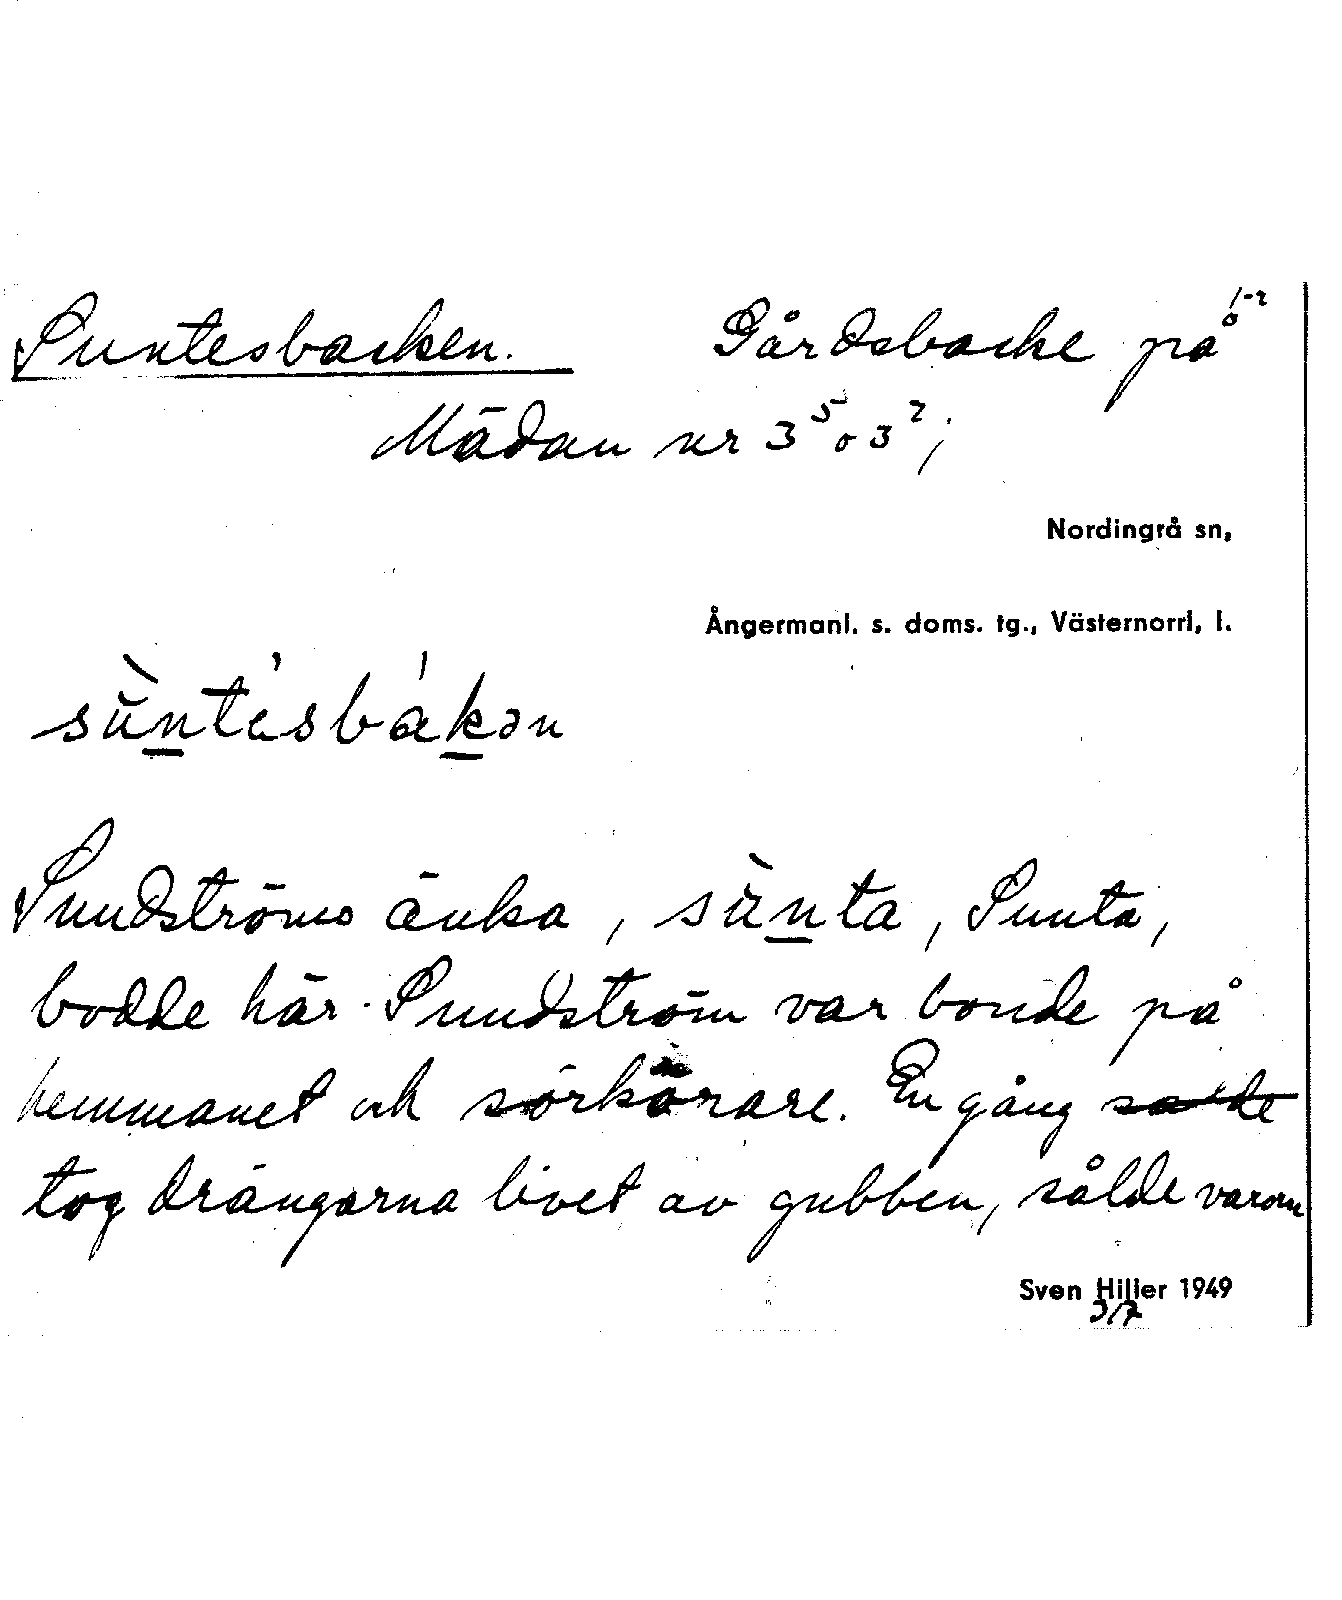 Suntesbacken. Gårdsbacke på 1-2
Mädan nr 3⁵ o 3²;
Nordingrå sn,
Ångermanl. s. doms. tg., Västernorrl. l.
sùntesbákən
Sundströms änka, sùnta, Sunta,
bodde här. Sundström var bonde på
hemmanet och sörkörare. En gång ~~sålde~~
tog drängarna livet av gubben, sålde varorn
Sven Hiller 1949
3/7